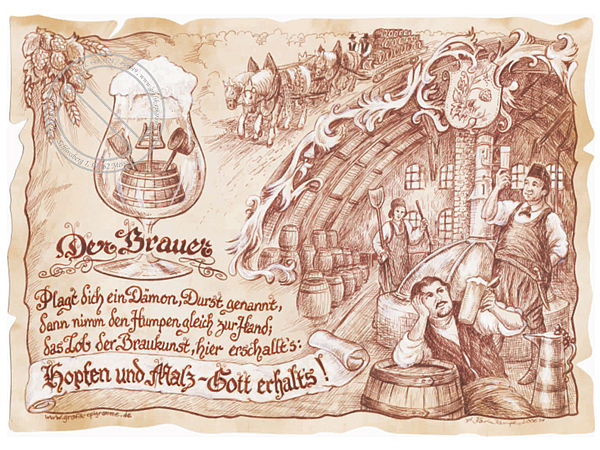 Der Brauer
Plagt dich ein Dämon, Durst genannt,
dann nimm den Humpen gleich zur Hand;
das Lob der Braukunst, hier erschallt's:
Hopfen und Malz - Gott erhalt's!
www.grafik-epigramme.de